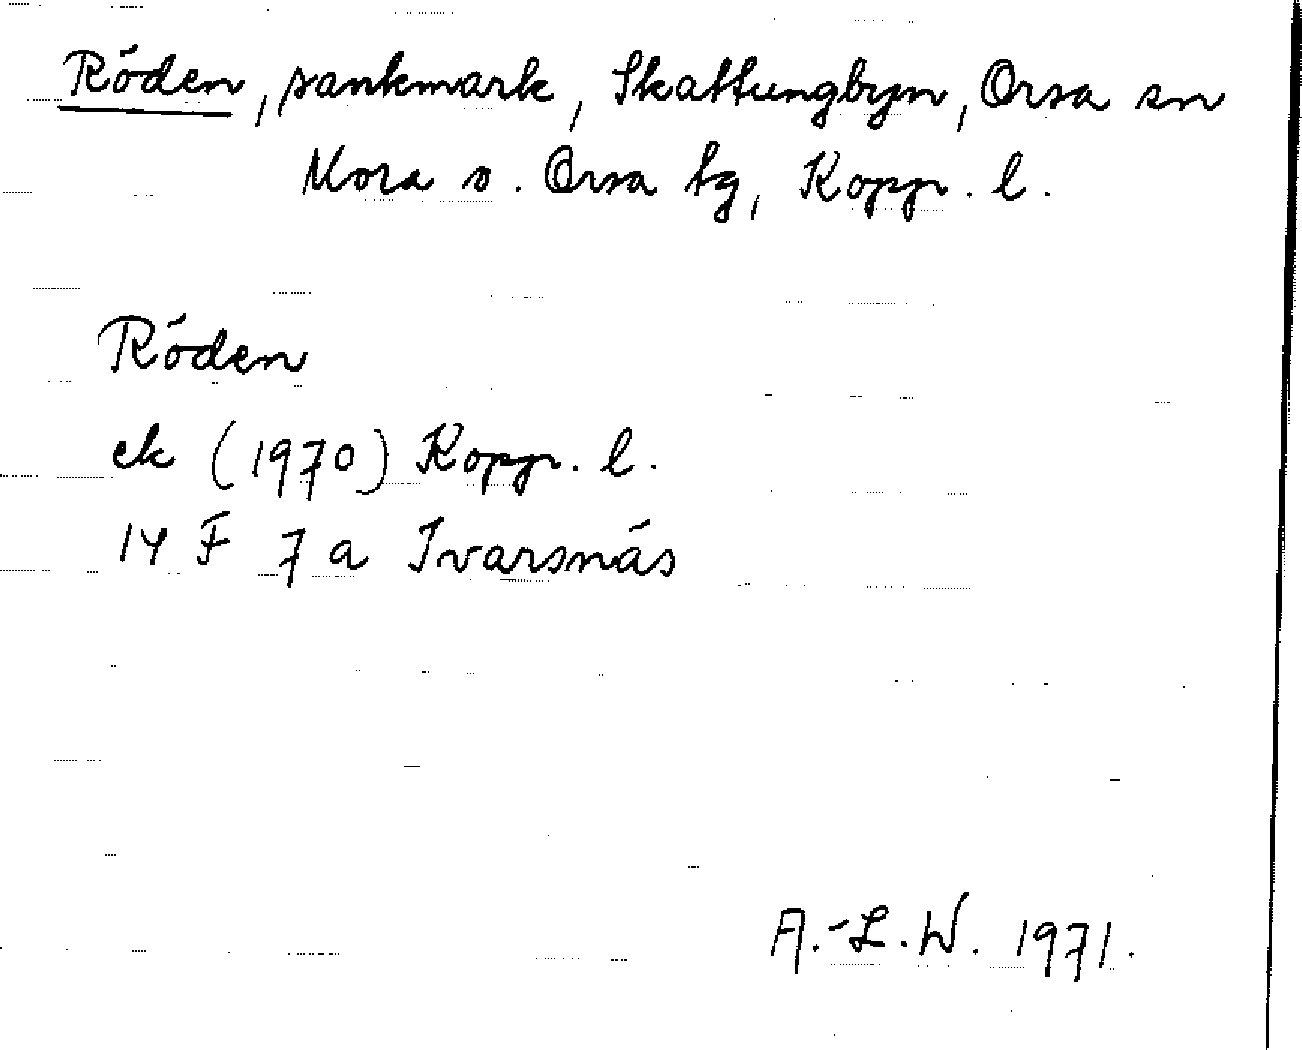 Röden, sankmark, Skattungbyn, Orsa sn
Mora o. Orsa tg, Kopp. l.
Röden
ek (1970) Kopp. l.
14 F 7 a Ivarsnäs
A.-L.W. 1971.